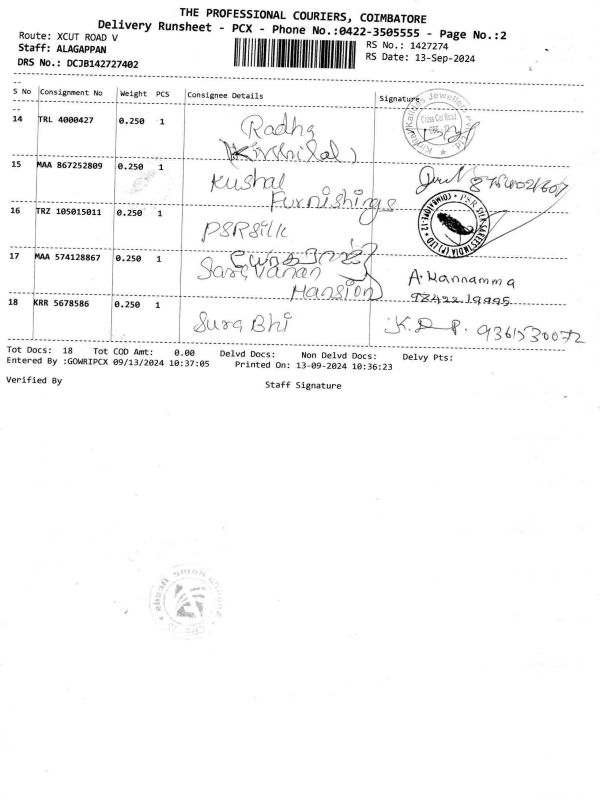 THE PROFESSIONAL COURIERS, COIMBATORE
Delivery Runsheet - PCX - Phone No.:0422-3505555 - Page No.:2
Route: XCUT ROAD V
RS No.: 1427274
Staff: ALAGAPPAN
RS Date: 13-Sep-2024
DRS No.: DCJB142727402
S No Consignment No Weight PCS Consignee Details Signature
14 TRL 4000427 0.250 1 Radha
(Kirthilal)
15 MAA 867252809 0.250 1 Kushal
Furnishings
16 TRZ 105015011 0.250 1 PSR Silk
17 MAA 574128867 0.250 1 Saravanan
Mansion
A. Kannamma
98422 19995
18 KRR 5678586 0.250 1 Sura Bhi K.D.P. 9361530072
Tot Docs: 18 Tot COD Amt: 0.00 Delvd Docs: Non Delvd Docs: Delvy Pts:
Entered By :GOWRIPCX 09/13/2024 10:37:05 Printed On: 13-09-2024 10:36:23
Verified By Staff Signature